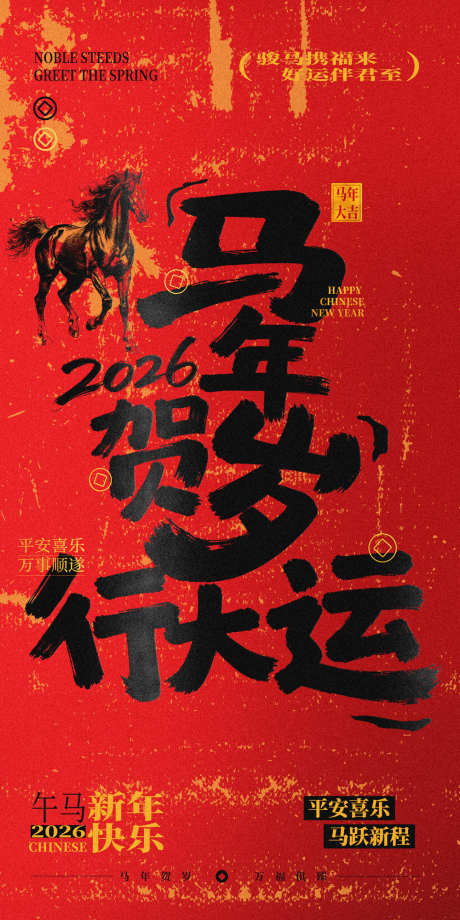 NOBLE STEEDS
GREET THE SPRING
(骏马携福来
好运伴君至)
马年
大吉
马
HAPPY
CHINESE
NEW YEAR
年
2026
贺岁
平安喜乐
万事顺遂
行大运
午马
2026
CHINESE
新年
快乐
平安喜乐
马跃新程
马年贺岁 万福俱臻